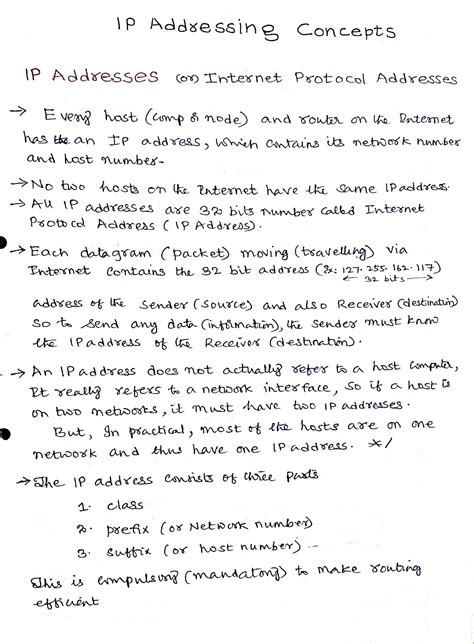 IP Addressing Concepts
IP Addresses (or) Internet Protocol Addresses
→ Every host (comp & node) and router on the Internet
has the an IP address, which contains its network number
and host number.
→ No two hosts on the Internet have the same IP address.
→ All IP addresses are 32 bits number called Internet
Protocol Address (IP Address).
→ Each datagram (packet) moving (travelling) via
Internet contains the 32 bit address (Ex: 127.255.162.117)
← 32 bits →
address of the sender (source) and also Receiver (destination)
so to send any data (information), the sender must know
the IP address of the Receiver (destination).
→ An IP address does not actually refer to a host computer,
It really refers to a network interface, so if a host is
on two networks, it must have two IP addresses.
But, In practical, most of the hosts are on one
network and thus have one IP address. */
→ The IP address consists of three parts
1. class
2. prefix (or Network number)
3. suffix (or host number) –
This is compulsory (mandatory) to make routing
efficient